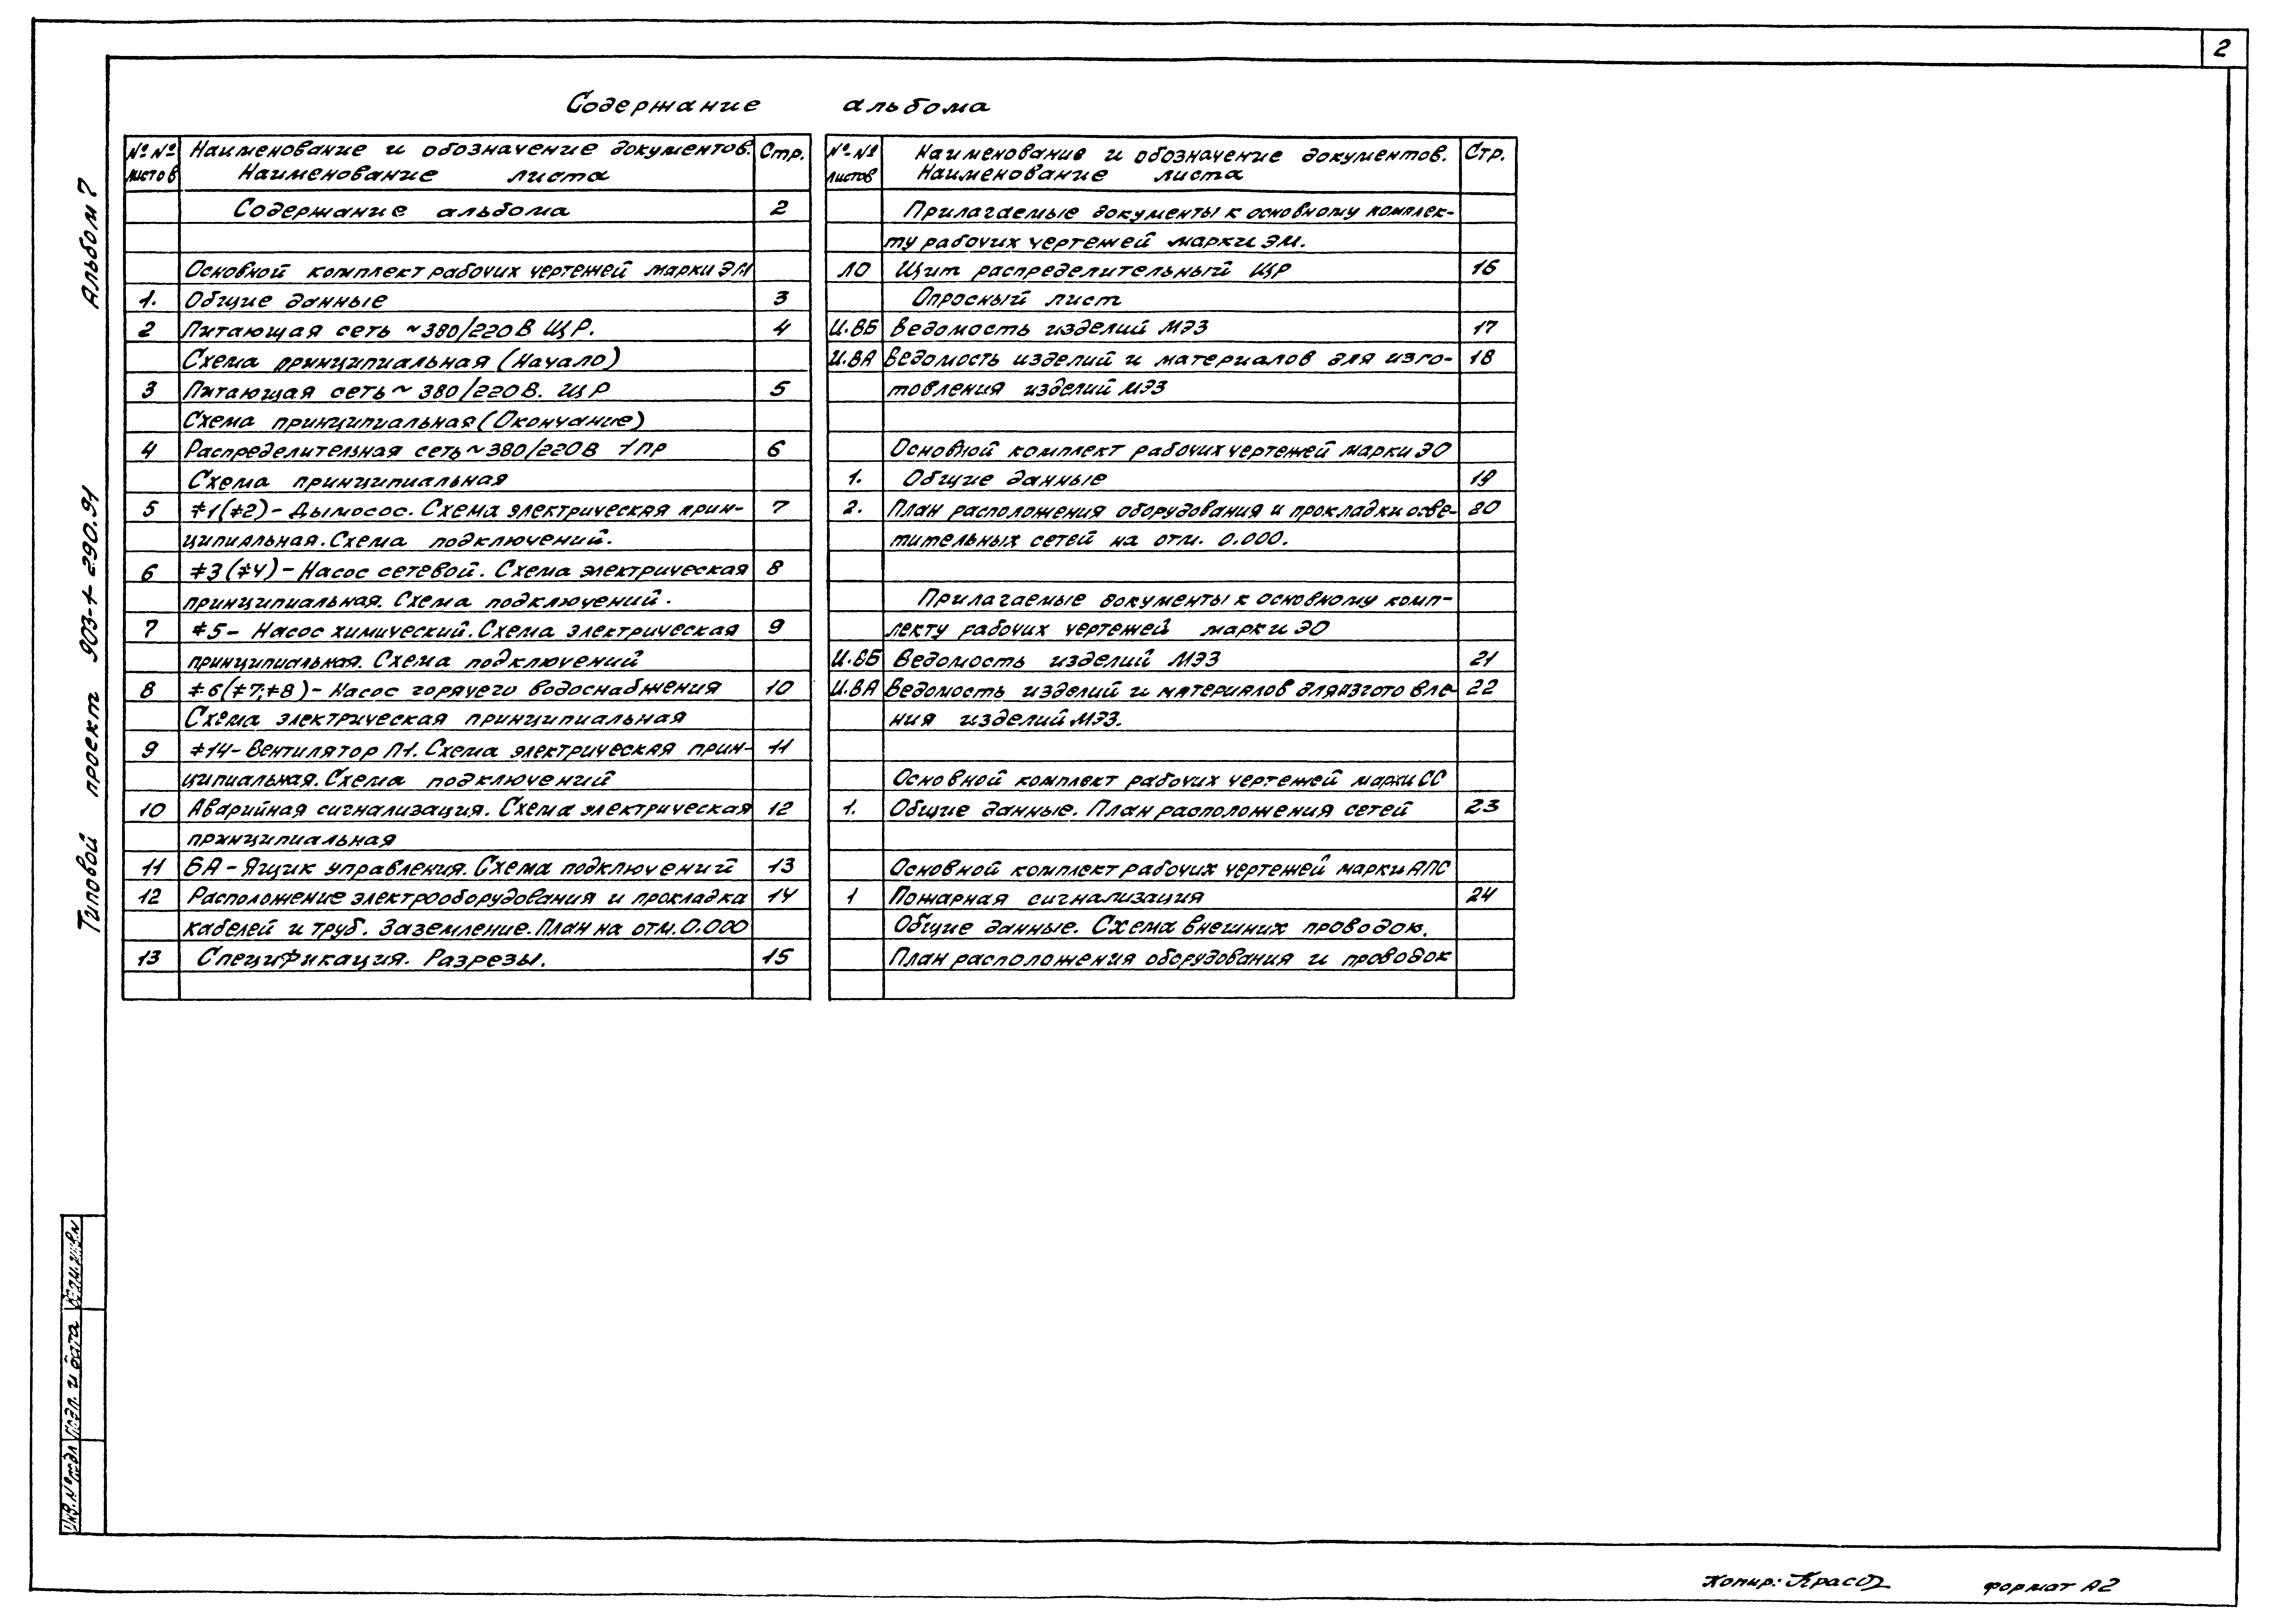 2
Содержание альбома
№№ листов
Наименование и обозначение документов. Наименование листа
Стр.
Содержание альбома 2
Основной комплект рабочих чертежей марки ЭМ
1. Общие данные 3
2 Питающая сеть ~380/220В ЩР. 4
Схема принципиальная (Начало)
3 Питающая сеть ~ 380/220В. ЩР 5
Схема принципиальная (Окончание)
4 Распределительная сеть ~380/220В 1ПР 6
Схема принципиальная
5 ≠1(≠2) - Дымосос. Схема электрическая прин- 7
ципиальная. Схема подключений.
6 ≠3(≠4) - Насос сетевой. Схема электрическая 8
принципиальная. Схема подключений.
7 ≠5 - Насос химический. Схема электрическая 9
принципиальная. Схема подключений
8 ≠6(≠7;≠8) - Насос горячего водоснабжения 10
Схема электрическая принципиальная
9 ≠14 - Вентилятор П1. Схема электрическая прин- 11
ципиальная. Схема подключений
10 Аварийная сигнализация. Схема электрическая 12
принципиальная
11 6А - Ящик управления. Схема подключений 13
12 Расположение электрооборудования и прокладка 14
кабелей и труб. Заземление. План на отм. 0.000
13 Спецификация. Разрезы. 15
№-№ листов
Наименование и обозначение документов. Наименование листа
Стр.
Прилагаемые документы к основному комплек-
ту рабочих чертежей марки ЭМ.
ЛО Щит распределительный ЩР 16
Опросный лист
И.ВБ Ведомость изделий МЭЗ 17
И.ВА Ведомость изделий и материалов для изго- 18
товления изделий МЭЗ
Основной комплект рабочих чертежей марки ЭО
1. Общие данные 19
2. План расположения оборудования и прокладки осве- 20
тительных сетей на отм. 0.000.
Прилагаемые документы к основному комп-
лекту рабочих чертежей марки ЭО
И.ВБ Ведомость изделий МЭЗ 21
И.ВА Ведомость изделий и материалов для изготовле- 22
ния изделий МЭЗ.
Основной комплект рабочих чертежей марки СС
1. Общие данные. План расположения сетей 23
Основной комплект рабочих чертежей марки АПС
1 Пожарная сигнализация 24
Общие данные. Схема внешних проводок.
План расположения оборудования и проводок
Типовой проект 903-1-290.91 Альбом 7
Инв.№ подл
Подп. и дата
Взам. инв.N
Копир: формат А2